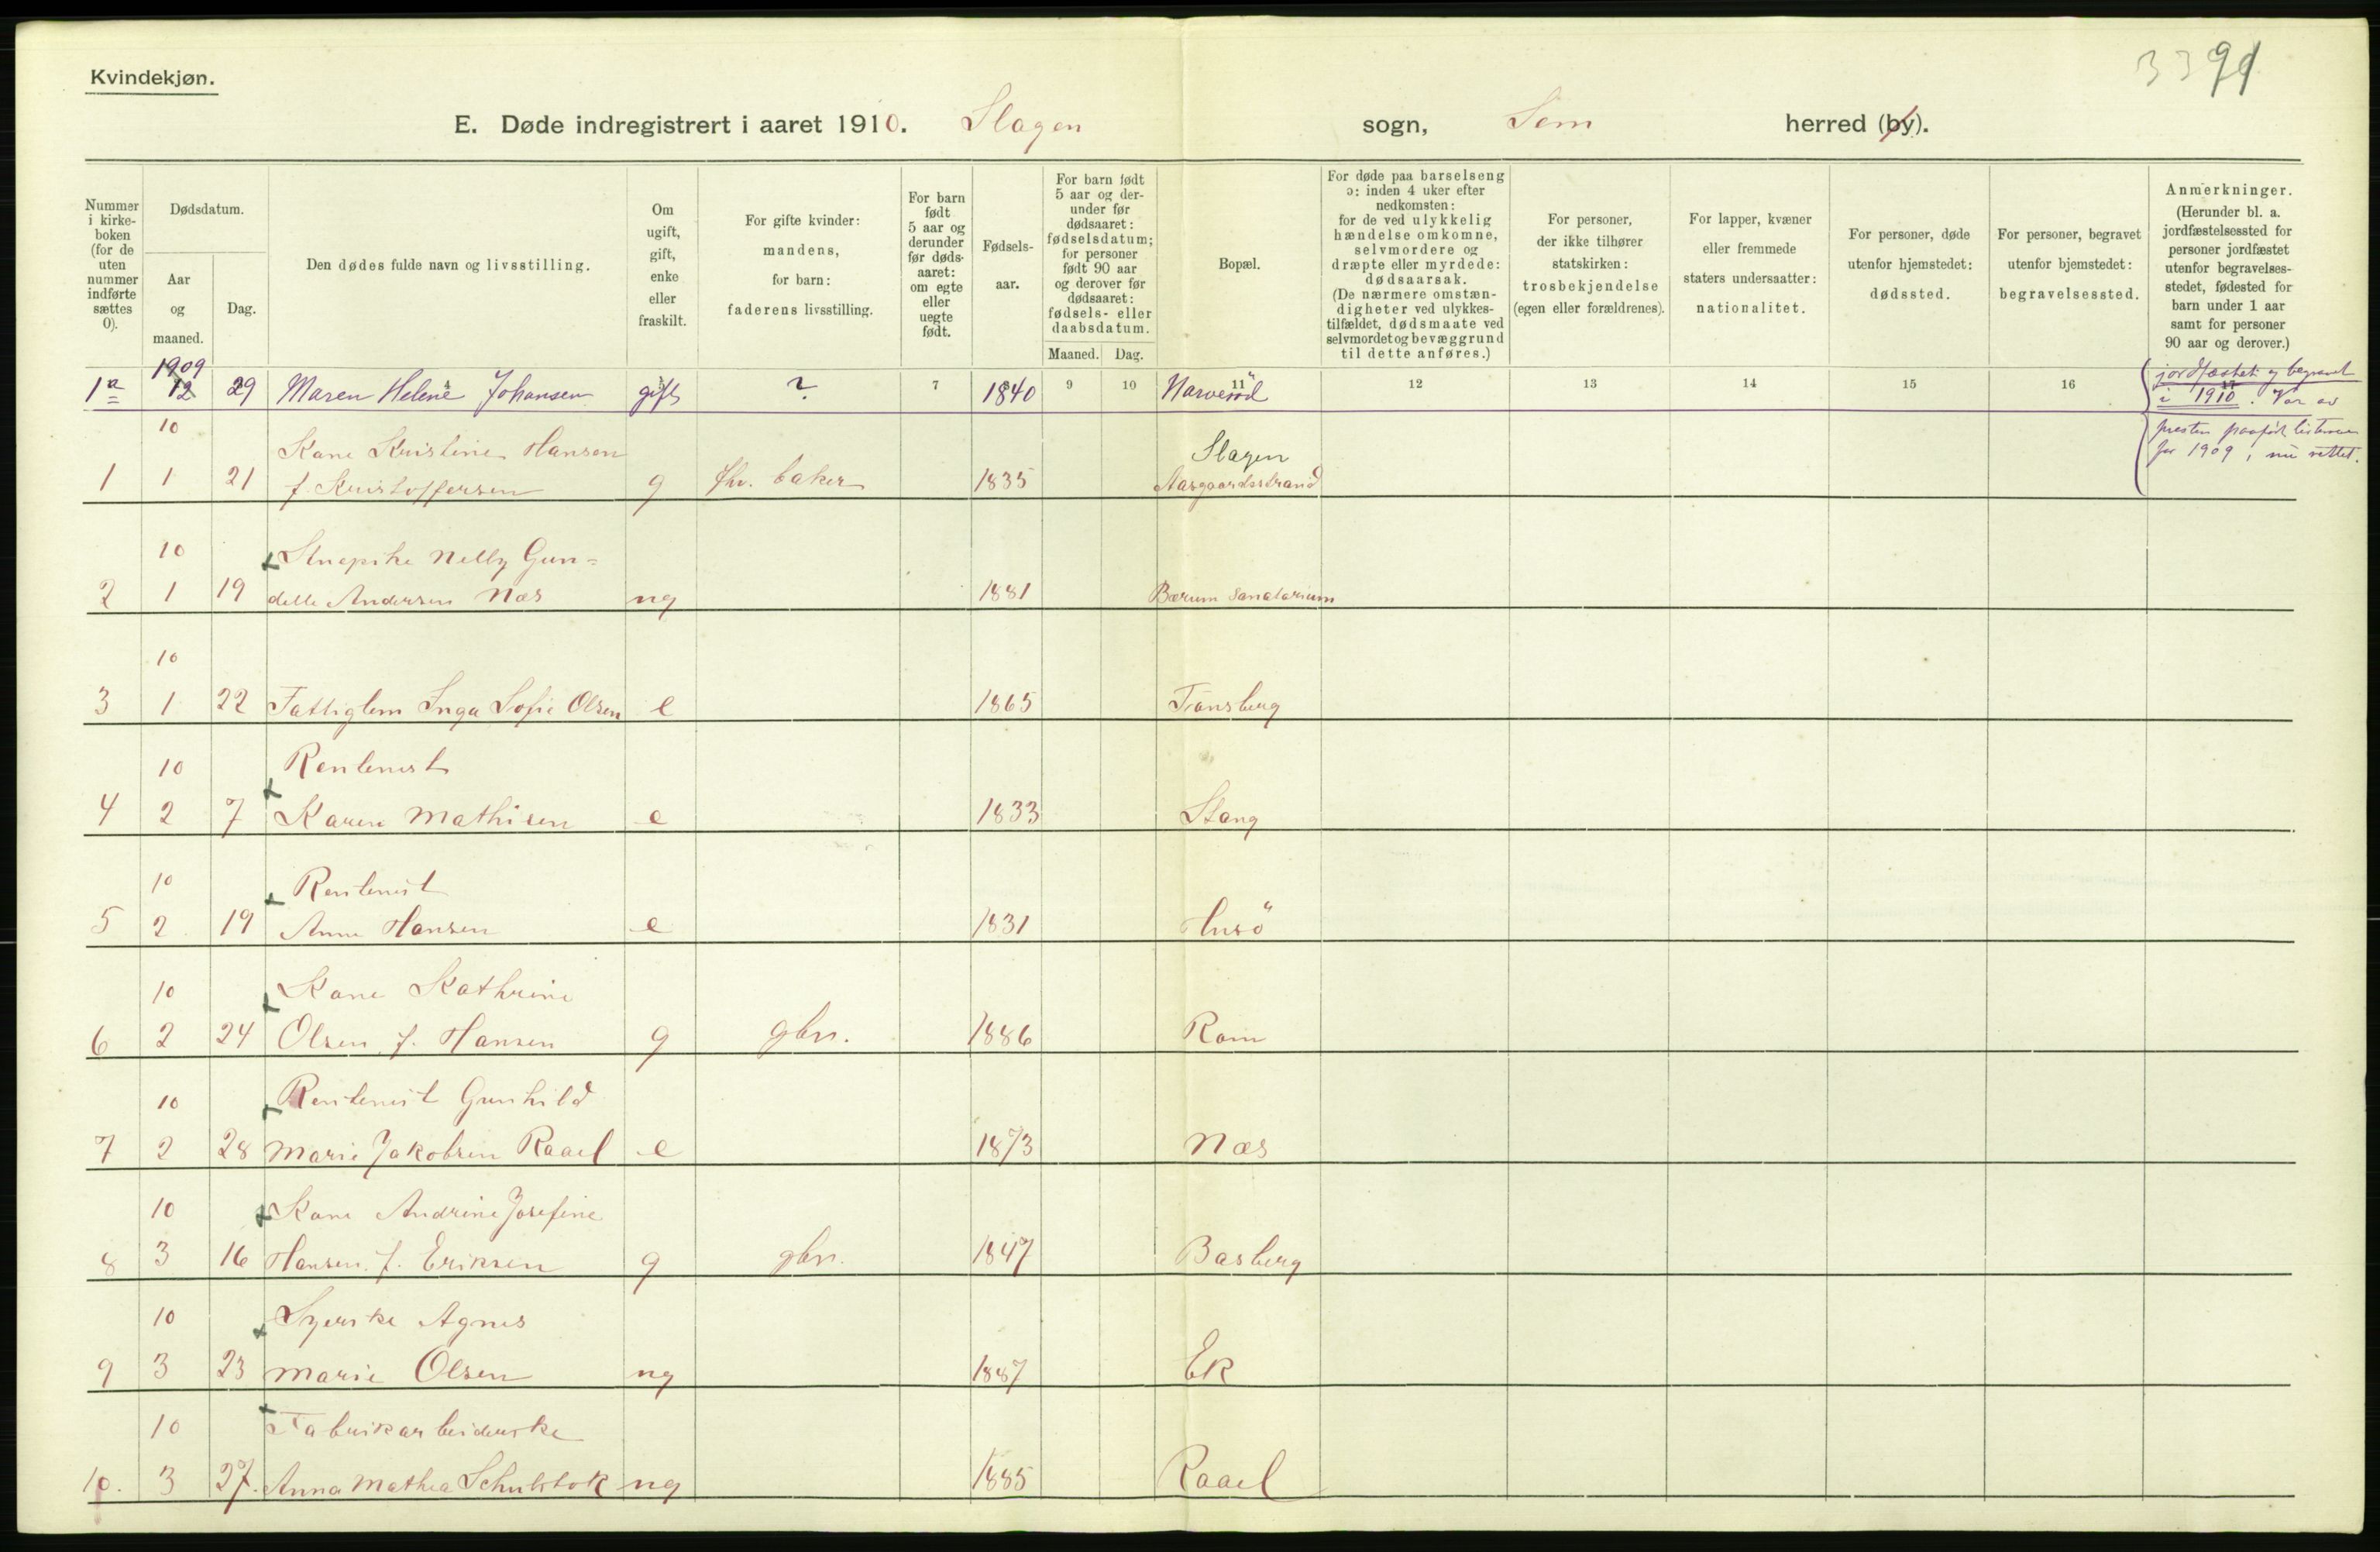 Kvindekjøn.
3391
E. Døde indregistrert i aaret 1910. Slagen sogn, Sem herred (by).
Nummer i kirke-boken (for de uten nummer indførte sættes 0).
Dødsdatum.
Aar og maaned.
Dag.
Den dødes fulde navn og livsstilling.
Om ugift, gift, enke eller fraskilt.
For gifte kvinder: mandens, for barn: faderens livsstilling.
For barn født 5 aar og derunder før døds-aaret: om egte eller uegte født.
Fødsels-aar.
For barn født 5 aar og der-under før dødsaaret: fødselsdatum; for personer født 90 aar og derover før dødsaaret: fødsels- eller daabsdatum.
Maaned. Dag.
Bopæl.
For døde paa barselseng ɔ: inden 4 uker efter nedkomsten: for de ved ulykkelig hændelse omkomne, selvmordere og dræpte eller myrdede: dødsaarsak. (De nærmere omstæn-digheter ved ulykkes-tilfældet, dødsmaate ved selvmordet og bevæggrund til dette anføres.)
For personer, der ikke tilhører statskirken: trosbekjendelse (egen eller forældrenes).
For lapper, kvæner eller fremmede staters undersaatter: nationalitet.
For personer, døde utenfor hjemstedet: dødssted.
For personer, begravet utenfor hjemstedet: begravelsessted.
Anmerkninger. (Herunder bl. a. jordfæstelsessted for personer jordfæstet utenfor begravelses-stedet, fødested for barn under 1 aar samt for personer 90 aar og derover.)
7 9 10 11 12 13 14 15 16 17
1909
1a 12 29 Maren Helene Johansen gift ? 1840 Narverød
jordfæstet og begravet
i 1910. Var av
presten paaført listerne
for 1909, nu rettet.
10 Kone Kristine Hansen Slagen
1 1 21 f. Kristoffersen g fhv. baker 1835 Aasgaardsstrand
10 Strepike Nelly Gun=
2 1 19 delle Andersen Næs ug 1881 Bærum Sanatorium
10
3 1 22 Fattiglem Inga Sofie Olsen e 1865 Tønsberg
10 Rentenist
4 2 7 Karen Mathisen e 1833 Stang
10 Rentenist
5 2 19 Anne Hansen e 1831 Husö
10 Kone Kathrine
6 2 24 Olsen f. Hansen g gbr. 1886 Rom
10 Rentenist Gunhild
7 2 28 Marie Jakobsen Raael e 1873 Næs
10 Kone Andrine Josefine
8 3 16 Hansen f. Eriksen g gbr. 1847 Basberg
10 Syerske Agnes
9 3 23 Marie Olsen ug 1887 Ek
10 Fabrikarbeiderske
10. 3 27. Anna Mathea Schulstok ug 1885 Raael